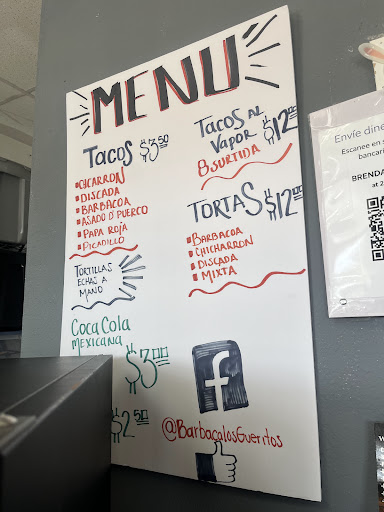 MENU
TACOS $3.50
CICARRON
DISCADA
BARBACOA
ASADO D PUERCO
PAPA ROJA
PICADILLO
TORTILLAS
ECHAS A
MANO
COCA COLA
MEXICANA
$3.00
$2.50
TACOS AL
VAPOR $12.00
8 SURTIDA
TORTAS $12.00
BARBACOA
CHICHARRON
DISCADA
MIXTA
f
@BarbacolosGueritos
Envíe dine
Escanee en s
bancari
BRENDA
at 2